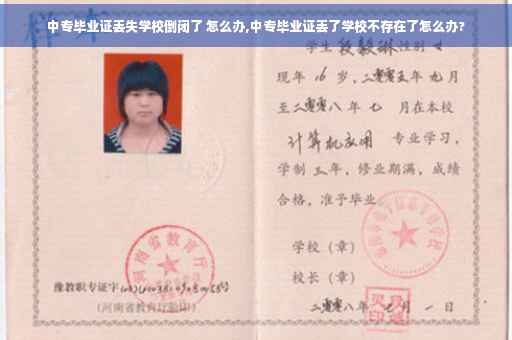 中专毕业证丢失学校倒闭了 怎么办,中专毕业证丢了学校不存在了怎么办?
学生 段毅琳 性别 女
现年 16 岁，二零零五年 九 月
至二零零八 年 七 月在本校
计算机应用 专业学习，
学制 三 年，修业期满，成绩
合格，准予毕业
学校（章）
校长（章）
二零零八年 月 一 日
河南省教育厅
豫教职专证字
（河南省教育厅验印）